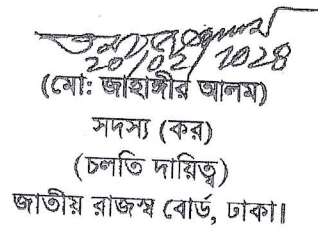 20/02/2024
(মো: জাহাঙ্গীর আলম)
সদস্য (কর)
(চলতি দায়িত্ব)
জাতীয় রাজস্ব বোর্ড, ঢাকা।